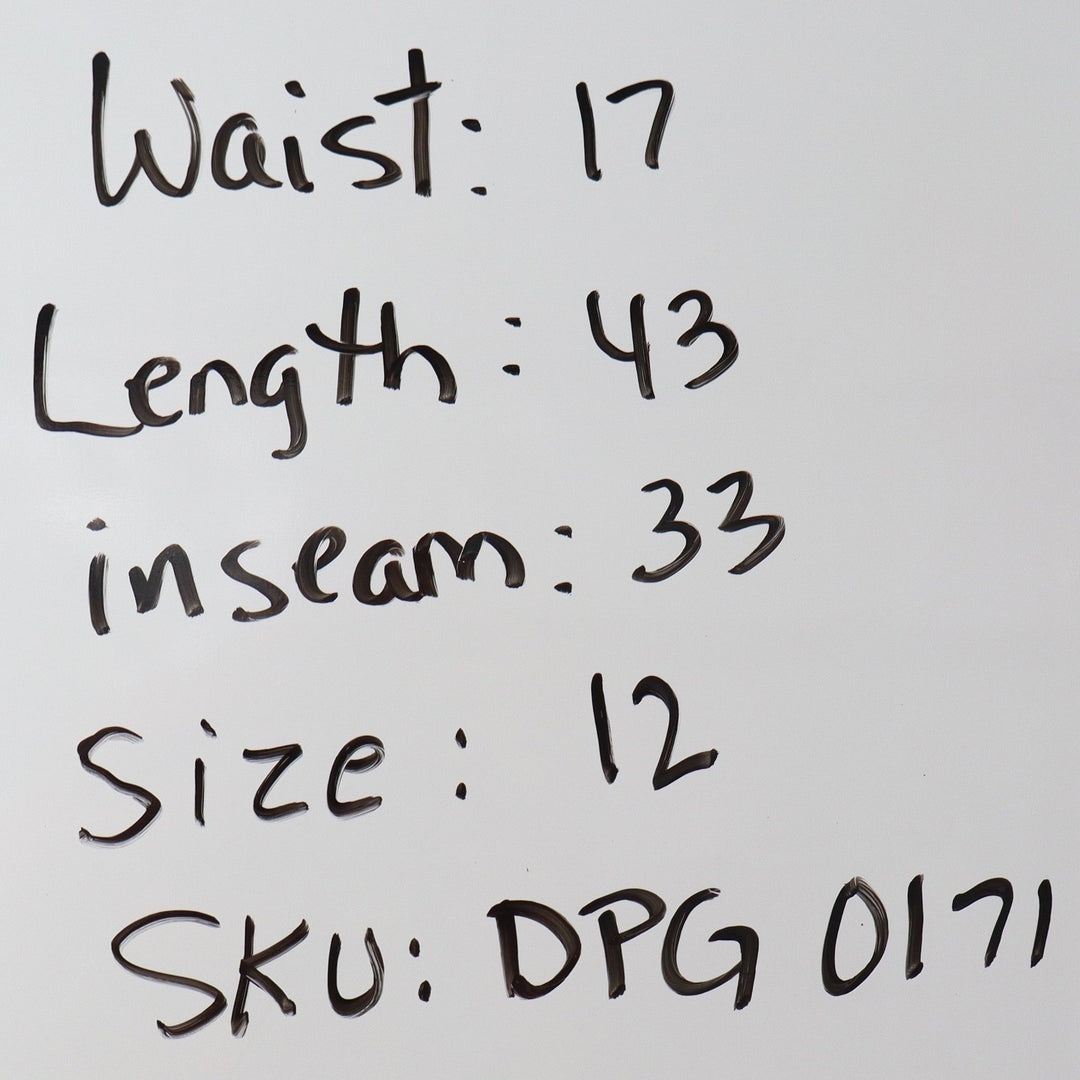 Waist: 17
Length: 43
inseam: 33
Size: 12
SKU: DPG 0171